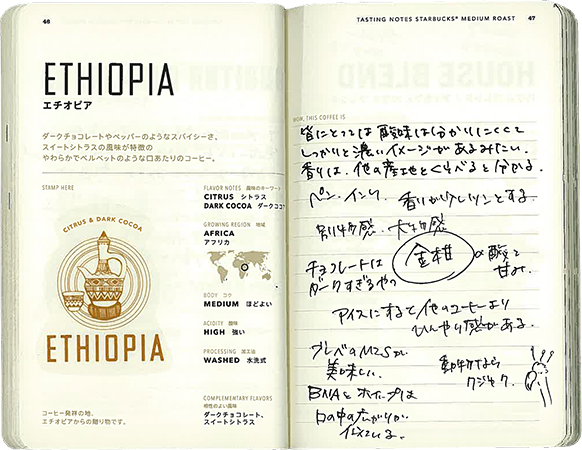 46
ETHIOPIA
エチオピア
ダークチョコレートやペッパーのようなスパイシーさ、
スイートシトラスの風味が特徴の
やわらかでベルベットのような口あたりのコーヒー。
STAMP HERE
CITRUS & DARK COCOA
ETHIOPIA
コーヒー発祥の地、
エチオピアからの贈り物です。
FLAVOR NOTES 風味のキーワード
CITRUS シトラス
DARK COCOA ダークココア
GROWING REGION 地域
AFRICA
アフリカ
BODY コク
MEDIUM ほどよい
ACIDITY 酸味
HIGH 強い
PROCESSING 加工法
WASHED 水洗式
COMPLEMENTARY FLAVORS
相性のよい風味
ダークチョコレート、
スイートシトラス
TASTING NOTES STARBUCKS® MEDIUM ROAST 47
WOW, THIS COFFEE IS
皆にとっては酸味は分かりにくくて
しっかりと濃いイメージがあるみたい。
香りは、他の産地とくらべると分かる。
ペン・インク 香りがけしりとする。
チョコレートは
ダークすぎるやつ
金柑 の酸と
甘み。
アイスにすると他のコーヒーより
ひんやり感がある。
プレベのM2Sが
美味しい。
BNAとホイップは
口の中の広がりが
似ている。
動物なら
クジャク。